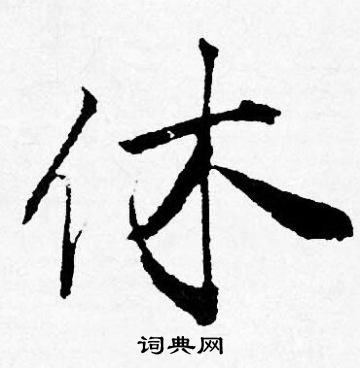 休
词典网